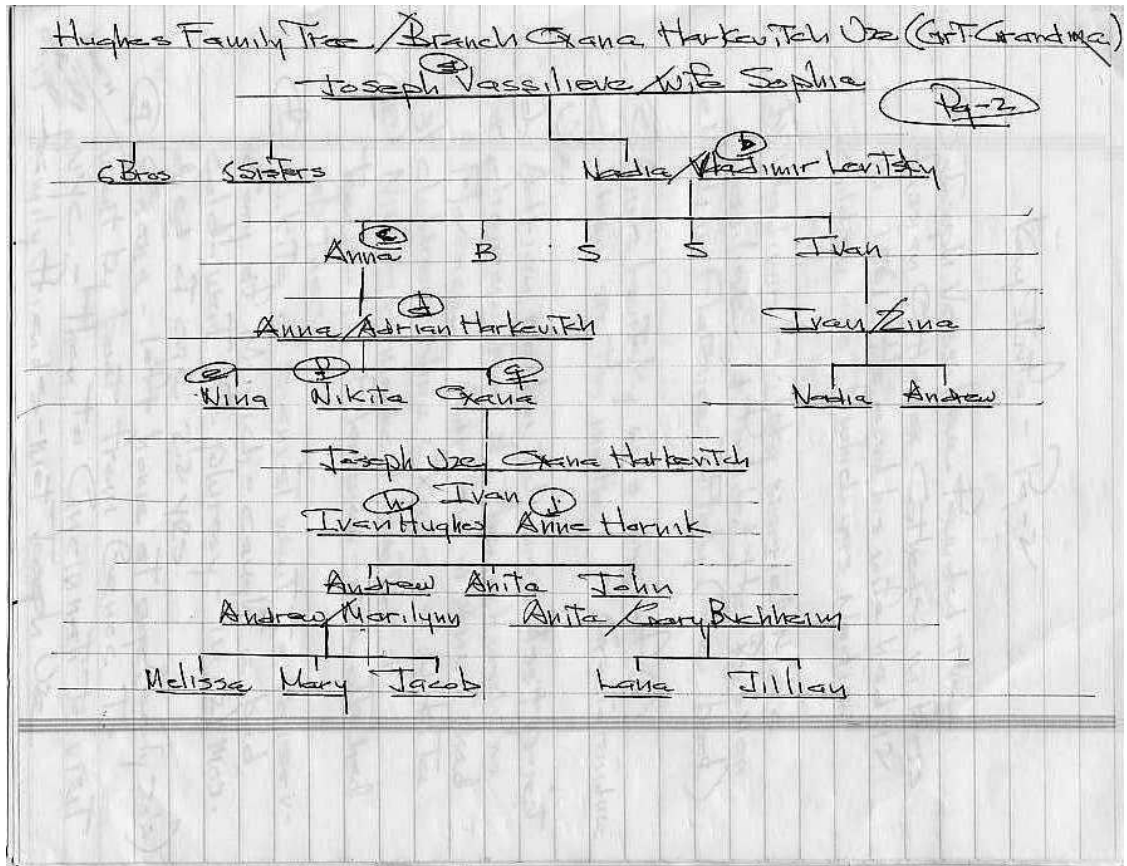 Hughes Family Tree / Branch Oxana Harkevitch Uze (GrT-Grandma)
a
Joseph Vassilieve / Wife Sophia
Pg-2
b
6 Bros 6 Sisters Nadia / Vladimir Levitsky
c
Anna B S S Ivan
d
Anna / Adrian Harkevitch Ivan / Zina
e f g
Nina Nikita Oxana Nadia Andrew
Joseph Uze Oxana Harkevitch
Ivan
h. i
Ivan Hughes Anne Hornik
Andrew Anita John
Andrew / Marilynn Anita / Gary Buchheim
Melissa Mary Jacob Lana Jillian